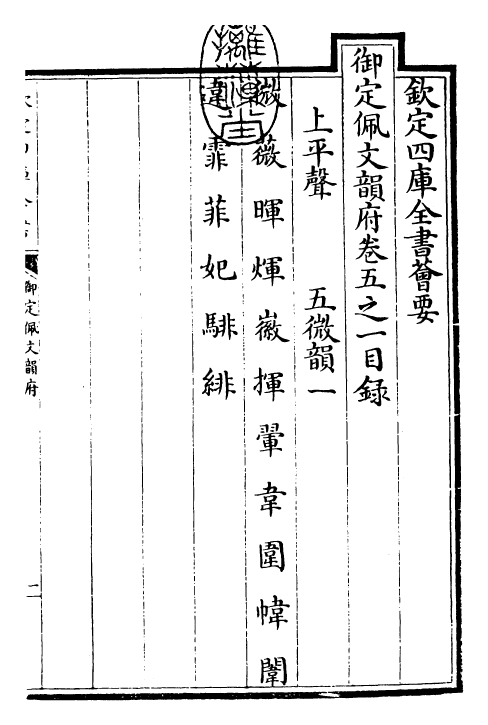 欽定四庫全書薈要
御定佩文韻府卷五之一目錄
上平聲 五微韻一
微薇暉煇徽揮翬韋圍幃闈
違霏菲妃騑緋
御定佩文韻府